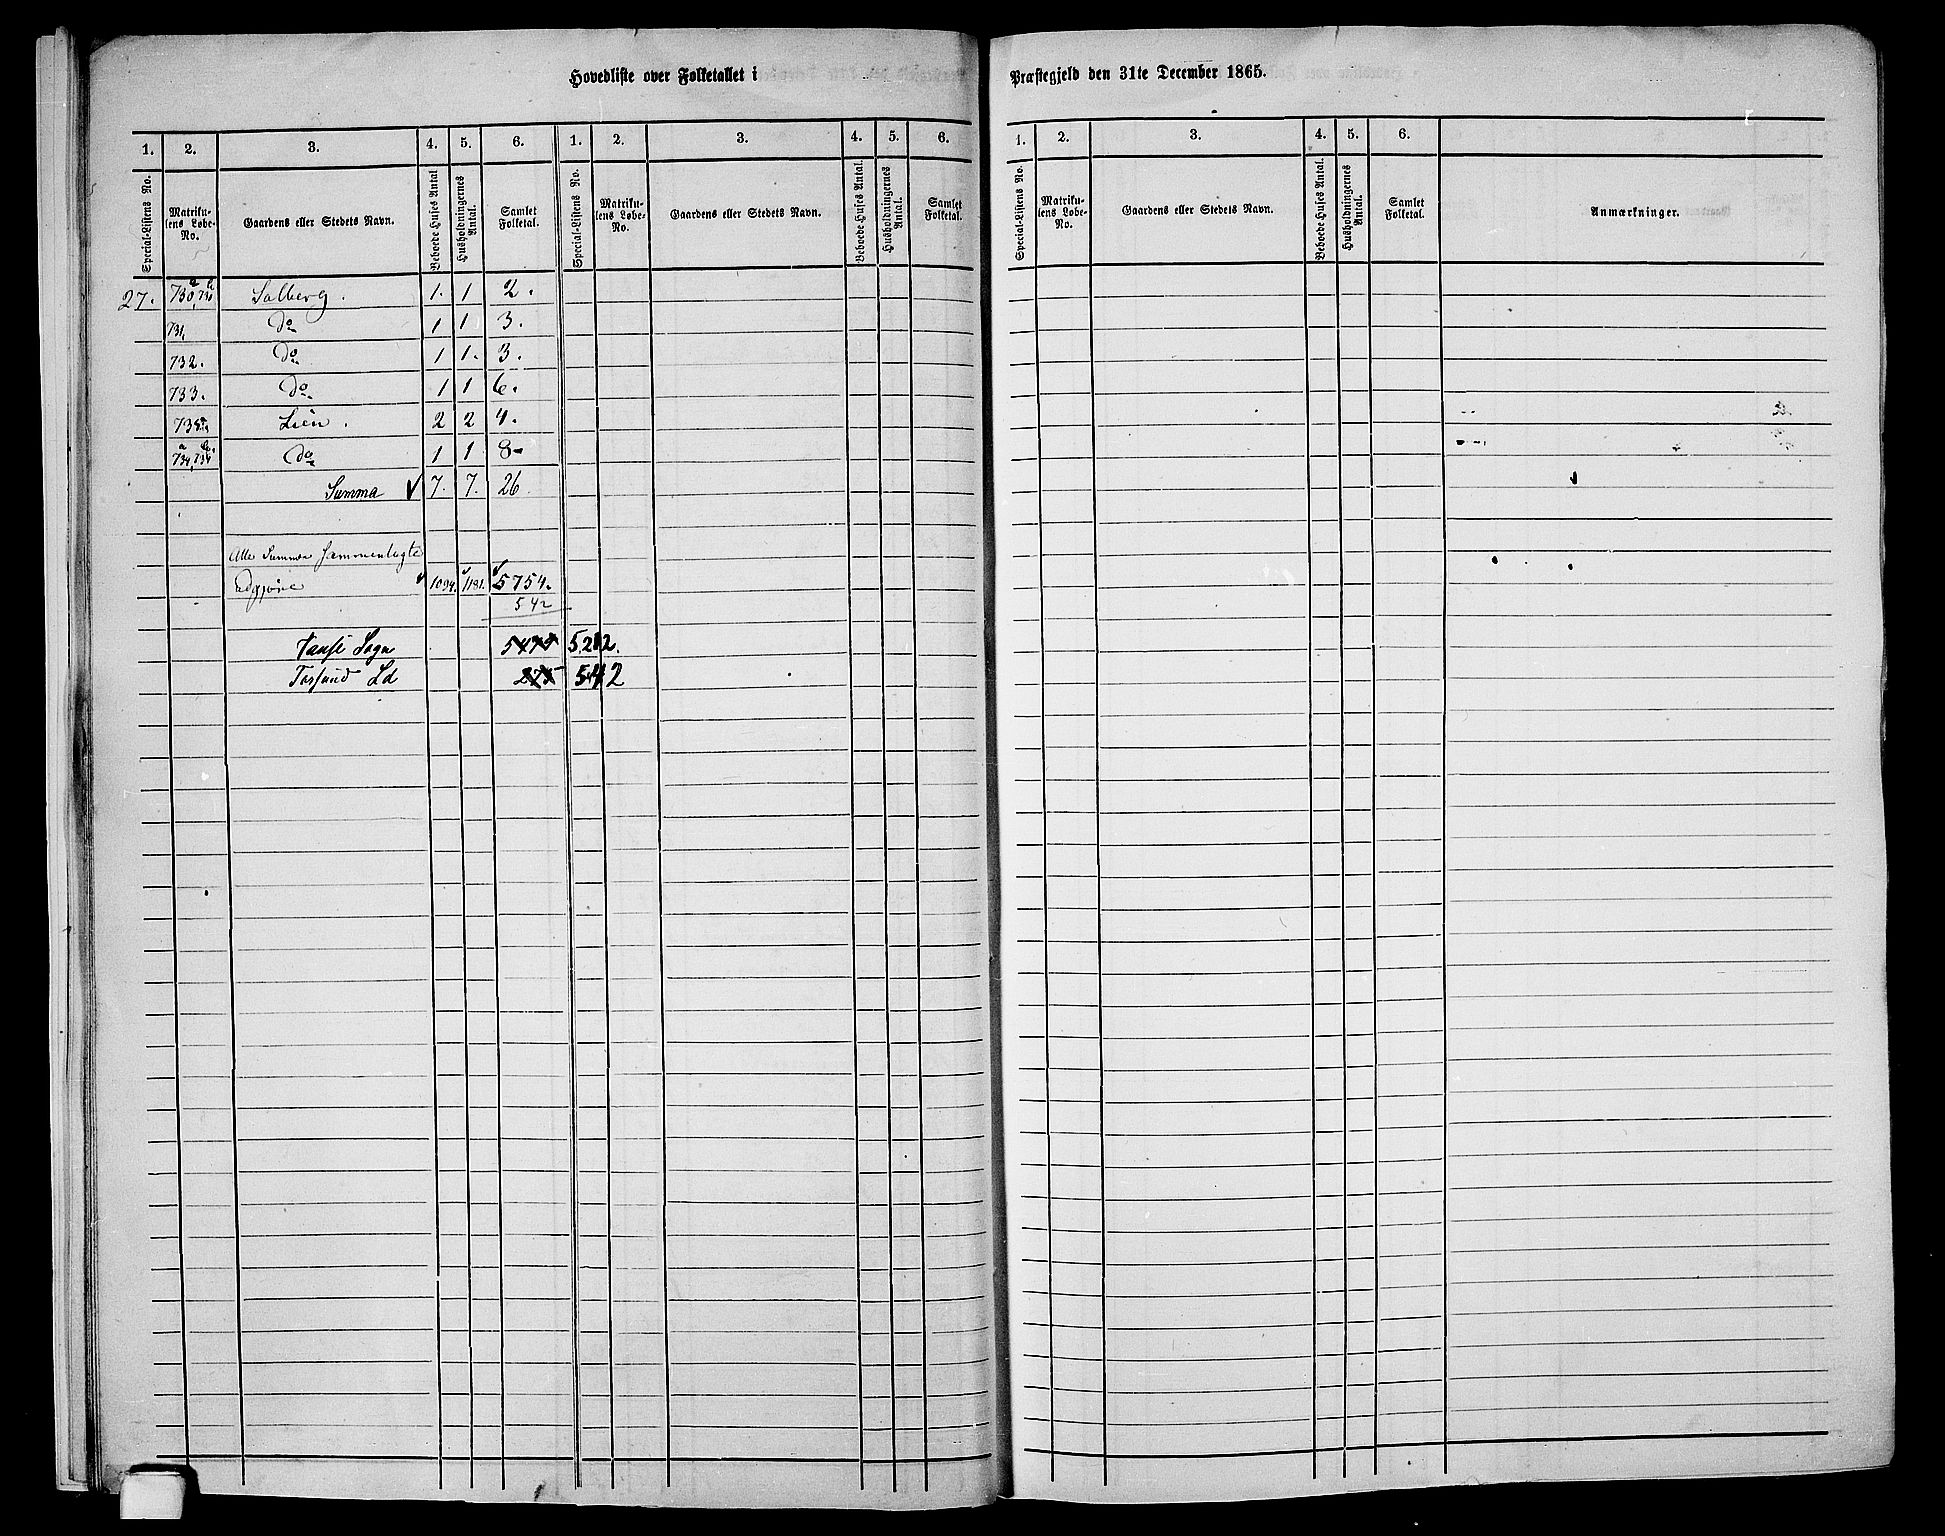 Hovedliste over Folketallet i
Præstegjeld den 31te December 1865.
1. 2. 3. 4. 5. 6. 1. 2. 3. 4. 5. 6.
Special-Listens No. Matrikulens Løbe-No. Gaardens eller Stedets Navn. Beboede Huses Antal Husholdningernes Antal. Samlet Folketal. Special-Listens No. Matrikulens Løbe-No. Gaardens eller Stedets Navn. Beboede Huses Antal. Husholdningernes Antal. Samlet Folketal.
27. 730a, 730b Salberg. 1. 1 2.
731. Do 1 1 3.
732. Do 1 1. 3.
733. Do 1 1 6.
Lien. 2 2 4.
734a, 734b. Do 1 1 8-
Summa 7. 7. 26
Alle Summer sammenlagte
udgjøre 1094. 1181. 5754.
542
Vanse Sogn 5212.
Farsund Ld 542
1. 2. 3. 4. 5. 6.
Special-Listens No. Matrikulens Løbe-No. Gaardens eller Stedets Navn. Beboede Huses Antal. Husholdningernes Antal. Samlet Folketal. Anmærkninger.